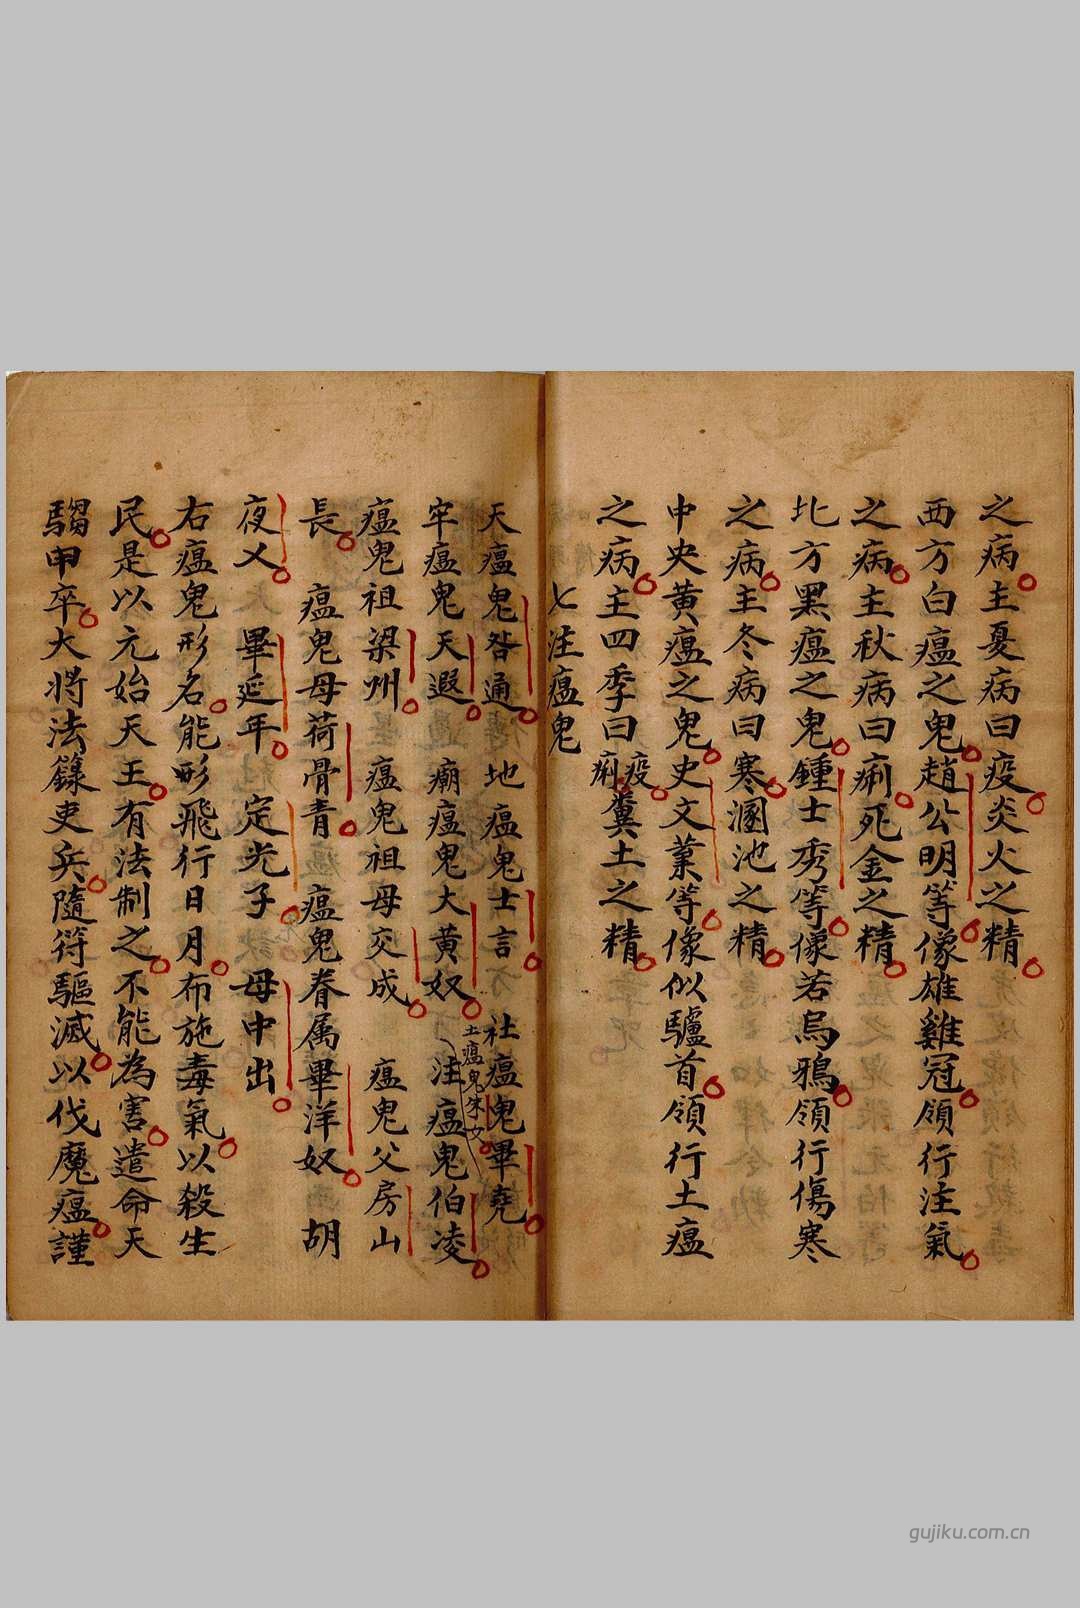 之病主夏病曰疫炎火之精
西方白瘟之鬼趙公明等像雄雞冠領行注氣
之病主秋病曰痢死金之精
北方黑瘟之鬼鍾士秀等像若烏鴉領行傷寒
之病主冬病曰寒溷池之精
中央黃瘟之鬼史文業等像似驢首領行土瘟
之病主四季曰疫痢糞土之精
七注瘟鬼
天瘟鬼咎通 地瘟鬼士言 社瘟鬼畢堯
土瘟鬼朱文
牢瘟鬼天遐 廟瘟鬼大黃奴 注瘟鬼伯凌
瘟鬼祖梁州 瘟鬼祖母交成 瘟鬼父房山
長 瘟鬼母荷骨青 瘟鬼眷属畢洋奴 胡
夜乂 畢延年 定光子 母中出
右瘟鬼形名能形飛行日月布施毒氣以殺生
民是以元始天王有法制之不能為害遣命天
騶甲卒大將法籙吏兵隨符驅滅以伐魔瘟謹
gujiku.com.cn